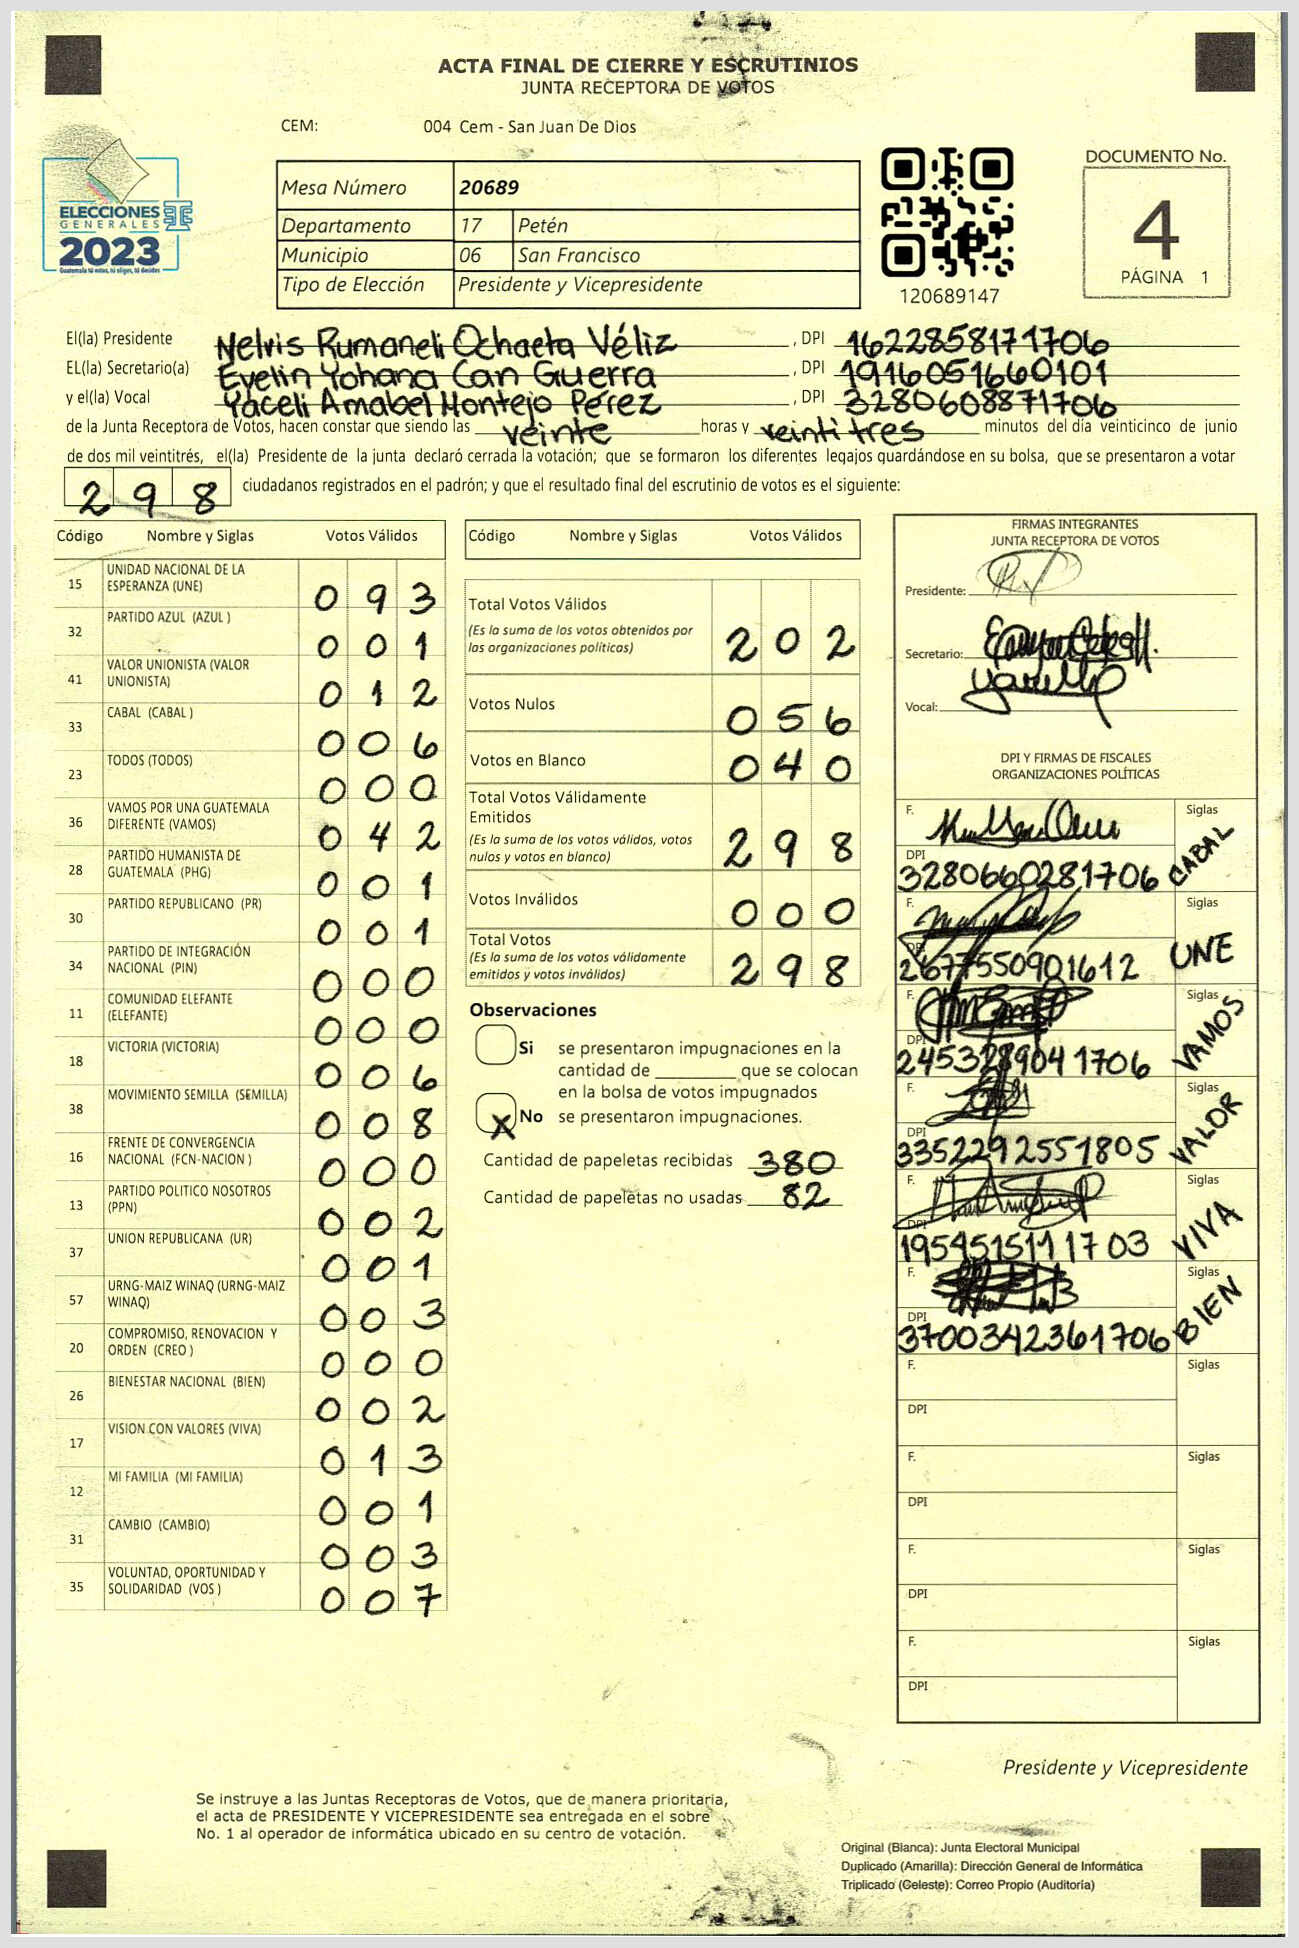 ACTA FINAL DE CIERRE Y ESCRUTINIOS
JUNTA RECEPTORA DE VOTOS
CEM: 004 Cem - San Juan De Dios
ELECCIONES
GENERALES
2023
Guatemala tú votas, tú eliges, tú decides
Mesa Número 20689
Departamento 17 Petén
Municipio 06 San Francisco
Tipo de Elección Presidente y Vicepresidente
120689147
DOCUMENTO No.
4
PÁGINA 1
El(la) Presidente Nelvis Rumaneli Ochaeta Véliz , DPI 1622858171706
EL(la) Secretario(a) Evelin Yohana Can Guerra , DPI 1916051660101
y el(la) Vocal Yaceli Amabel Montejo Pérez , DPI 3280608871706
de la Junta Receptora de Votos, hacen constar que siendo las veinte horas y veintitres minutos del día veinticinco de junio
de dos mil veintitrés, el(la) Presidente de la junta declaró cerrada la votación; que se formaron los diferentes legajos quardándose en su bolsa, que se presentaron a votar
298 ciudadanos registrados en el padrón; y que el resultado final del escrutinio de votos es el siguiente:
Código Nombre y Siglas Votos Válidos
15 UNIDAD NACIONAL DE LA ESPERANZA (UNE) 093
32 PARTIDO AZUL (AZUL ) 001
41 VALOR UNIONISTA (VALOR UNIONISTA) 012
33 CABAL (CABAL ) 006
23 TODOS (TODOS) 000
36 VAMOS POR UNA GUATEMALA DIFERENTE (VAMOS) 042
28 PARTIDO HUMANISTA DE GUATEMALA (PHG) 001
30 PARTIDO REPUBLICANO (PR) 001
34 PARTIDO DE INTEGRACIÓN NACIONAL (PIN) 000
11 COMUNIDAD ELEFANTE (ELEFANTE) 000
18 VICTORIA (VICTORIA) 006
38 MOVIMIENTO SEMILLA (SEMILLA) 008
16 FRENTE DE CONVERGENCIA NACIONAL (FCN-NACION ) 000
13 PARTIDO POLITICO NOSOTROS (PPN) 002
37 UNION REPUBLICANA (UR) 001
57 URNG-MAIZ WINAQ (URNG-MAIZ WINAQ) 003
20 COMPROMISO, RENOVACION Y ORDEN (CREO ) 000
26 BIENESTAR NACIONAL (BIEN) 002
17 VISION CON VALORES (VIVA) 013
12 MI FAMILIA (MI FAMILIA) 001
31 CAMBIO (CAMBIO) 003
35 VOLUNTAD, OPORTUNIDAD Y SOLIDARIDAD (VOS ) 007
Código Nombre y Siglas Votos Válidos
Total Votos Válidos 202
(Es la suma de los votos obtenidos por
las organizaciones políticas)
Votos Nulos 056
Votos en Blanco 040
Total Votos Válidamente
Emitidos 298
(Es la suma de los votos válidos, votos
nulos y votos en blanco)
Votos Inválidos 000
Total Votos 298
(Es la suma de los votos válidamente
emitidos y votos inválidos)
Observaciones
Si se presentaron impugnaciones en la
cantidad de ________ que se colocan
en la bolsa de votos impugnados
X No se presentaron impugnaciones.
Cantidad de papeletas recibidas 380
Cantidad de papeletas no usadas 82
FIRMAS INTEGRANTES
JUNTA RECEPTORA DE VOTOS
Presidente:
Secretario:
Vocal:
DPI Y FIRMAS DE FISCALES
ORGANIZACIONES POLÍTICAS
F. Siglas
DPI 3280660281706 CABAL
F. Siglas
DPI 2677550901612 UNE
F. Siglas
DPI 2453289041706 VAMOS
F. Siglas
DPI 3352292551805 VALOR
F. Siglas
DPI 1954515111703 VIVA
F. Siglas
DPI 3700342361706 BIEN
F. Siglas
DPI
F. Siglas
DPI
F. Siglas
DPI
F. Siglas
DPI
Presidente y Vicepresidente
Se instruye a las Juntas Receptoras de Votos, que de manera prioritaria,
el acta de PRESIDENTE Y VICEPRESIDENTE sea entregada en el sobre
No. 1 al operador de informática ubicado en su centro de votación.
Original (Blanca): Junta Electoral Municipal
Duplicado (Amarilla): Dirección General de Informática
Triplicado (Celeste): Correo Propio (Auditoría)